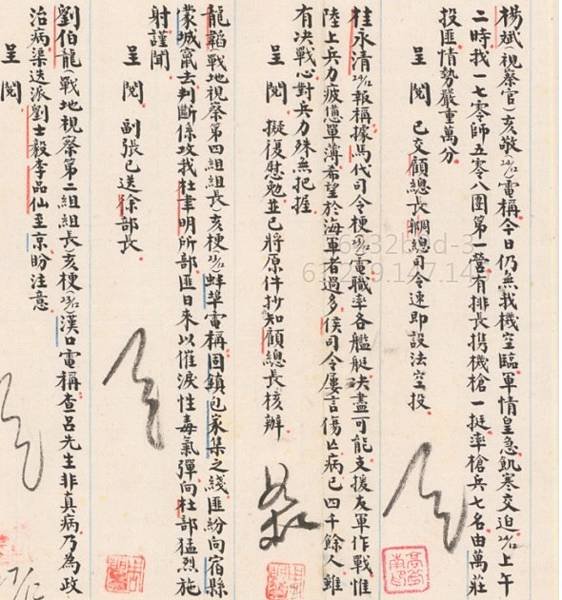 楊斌(視察官)亥敬24/12電稱今日仍無我機空臨軍情皇急飢寒交迫24/12上午
二時找一七零師五零八團第一營有排長携機槍一挺率槍兵七名由萬莊
投匪情勢嚴重萬分
呈閱 已交顧總長網總司令速即設法空投
桂永清24/12報稱據馬代司令梗23/12電職率各艦艇決盡可能支援友軍作戰惟
陸上兵力疲憊單薄希望於海軍者過多侯司令屢言傷亡病已四千餘人雖
有決戰心對兵力殊無把握
呈閱 擬復慰勉並已將原件抄知顧總長核辦
龍韜(戰地視察第四組組長)亥梗23/12蚌埠電稱固鎮包家集之綫匪紛向宿縣
蒙城竄去判斷係攻我杜聿明所部匪日來以催淚性毒氣彈向杜部猛烈施
射謹聞
呈閱 副張已送徐部長
劉伯龍(戰地視察第二組組長)亥梗23/12漢口電稱查呂先生非真病乃為政
治病渠迭派劉士毅李品仙至京盼注意
呈閱